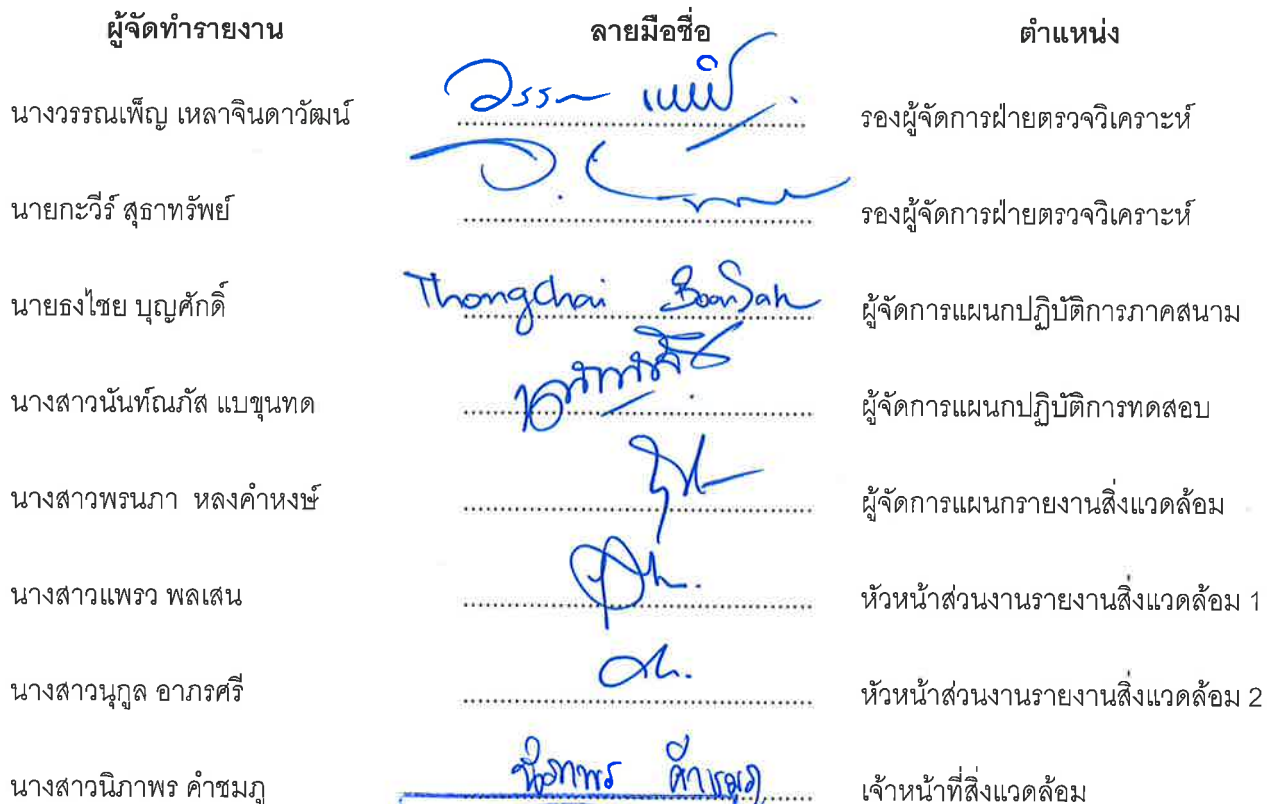 ผู้จัดทำรายงาน ลายมือชื่อ ตำแหน่ง
นางวรรณเพ็ญ เหลาจินดาวัฒน์ วรรณเพ็ญ รองผู้จัดการฝ่ายตรวจวิเคราะห์
นายกะวีร์ สุธาทรัพย์ รองผู้จัดการฝ่ายตรวจวิเคราะห์
นายธงไชย บุญศักดิ์ Thongchai BoonSak ผู้จัดการแผนกปฏิบัติการภาคสนาม
นางสาวนันท์ณภัส แบขุนทด ผู้จัดการแผนกปฏิบัติการทดสอบ
นางสาวพรนภา หลงคำหงษ์ ผู้จัดการแผนกรายงานสิ่งแวดล้อม
นางสาวแพรว พลเสน หัวหน้าส่วนงานรายงานสิ่งแวดล้อม 1
นางสาวนุกูล อาภรศรี หัวหน้าส่วนงานรายงานสิ่งแวดล้อม 2
นางสาวนิภาพร คำชมภู นิภาพร คำชมภู เจ้าหน้าที่สิ่งแวดล้อม